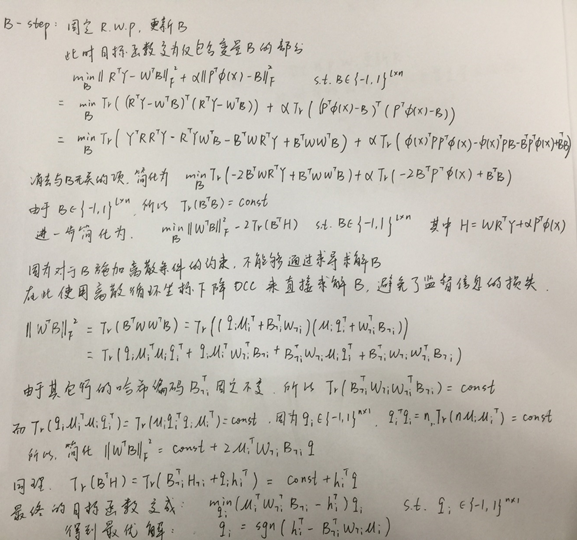 B-step: 固定 R.W.P. 更新B
此时目标函数变为仅包含变量B的部分
min_B ‖RᵀY-WᵀB‖²_F + α‖Pᵀφ(x)-B‖²_F s.t. B∈{-1,1}^{L×n}
= min_B Tr((RᵀY-WᵀB)ᵀ(RᵀY-WᵀB)) + αTr((Pᵀφ(x)-B)ᵀ(Pᵀφ(x)-B))
= min_B Tr(YᵀRRᵀY-RᵀYWᵀB-BᵀWRᵀY+BᵀWWᵀB) + αTr(φ(x)ᵀPPᵀφ(x)-φ(x)ᵀPB-BᵀPᵀφ(x)+BᵀB)
消去与B无关的项, 简化为 min_B Tr(-2BᵀWRᵀY+BᵀWWᵀB)+αTr(-2BᵀPᵀφ(x)+BᵀB)
由于 B∈{-1,1}^{L×n}, 所以 Tr(BᵀB)=const
进一步简化为. min_B ‖WᵀB‖²_F-2Tr(BᵀH) s.t. B∈{-1,1}^{L×n} 其中 H=WRᵀY+αPᵀφ(x)
因为对于B施加离散条件的约束, 不能够通过求导求解B
在此使用离散循环坐标下降 DCC 来直接求解B, 避免了监督信息的损失.
‖WᵀB‖²_F = Tr(BᵀWWᵀB) = Tr((qᵢμᵢᵀ+B¬ᵢᵀW¬ᵢ)(μᵢqᵢᵀ+W¬ᵢᵀB¬ᵢ))
= Tr(qᵢμᵢᵀμᵢqᵢᵀ+qᵢμᵢᵀW¬ᵢᵀB¬ᵢ+B¬ᵢᵀW¬ᵢμᵢqᵢᵀ+B¬ᵢᵀW¬ᵢW¬ᵢᵀB¬ᵢ)
由于其它行的哈希编码B¬ᵢᵀ固定不变, 所以 Tr(B¬ᵢᵀW¬ᵢW¬ᵢᵀB¬ᵢ)=const
而Tr(qᵢμᵢᵀμᵢqᵢᵀ)=Tr(μᵢqᵢᵀqᵢμᵢᵀ)=const. 因为qᵢ∈{-1,1}^{n×1}. qᵢᵀqᵢ=n, Tr(nμᵢμᵢᵀ)=const
所以, 简化 ‖WᵀB‖²_F = const + 2μᵢᵀW¬ᵢᵀB¬ᵢq
同理. Tr(BᵀH)=Tr(B¬ᵢᵀH¬ᵢ+qᵢhᵢᵀ) = const+hᵢᵀq
最终的目标函数变成: min_{qᵢ}(μᵢᵀW¬ᵢᵀB¬ᵢ-hᵢᵀ)qᵢ s.t. qᵢ∈{-1,1}^{n×1}
得到最优解: qᵢ = sgn(hᵢᵀ-B¬ᵢᵀW¬ᵢμᵢ)